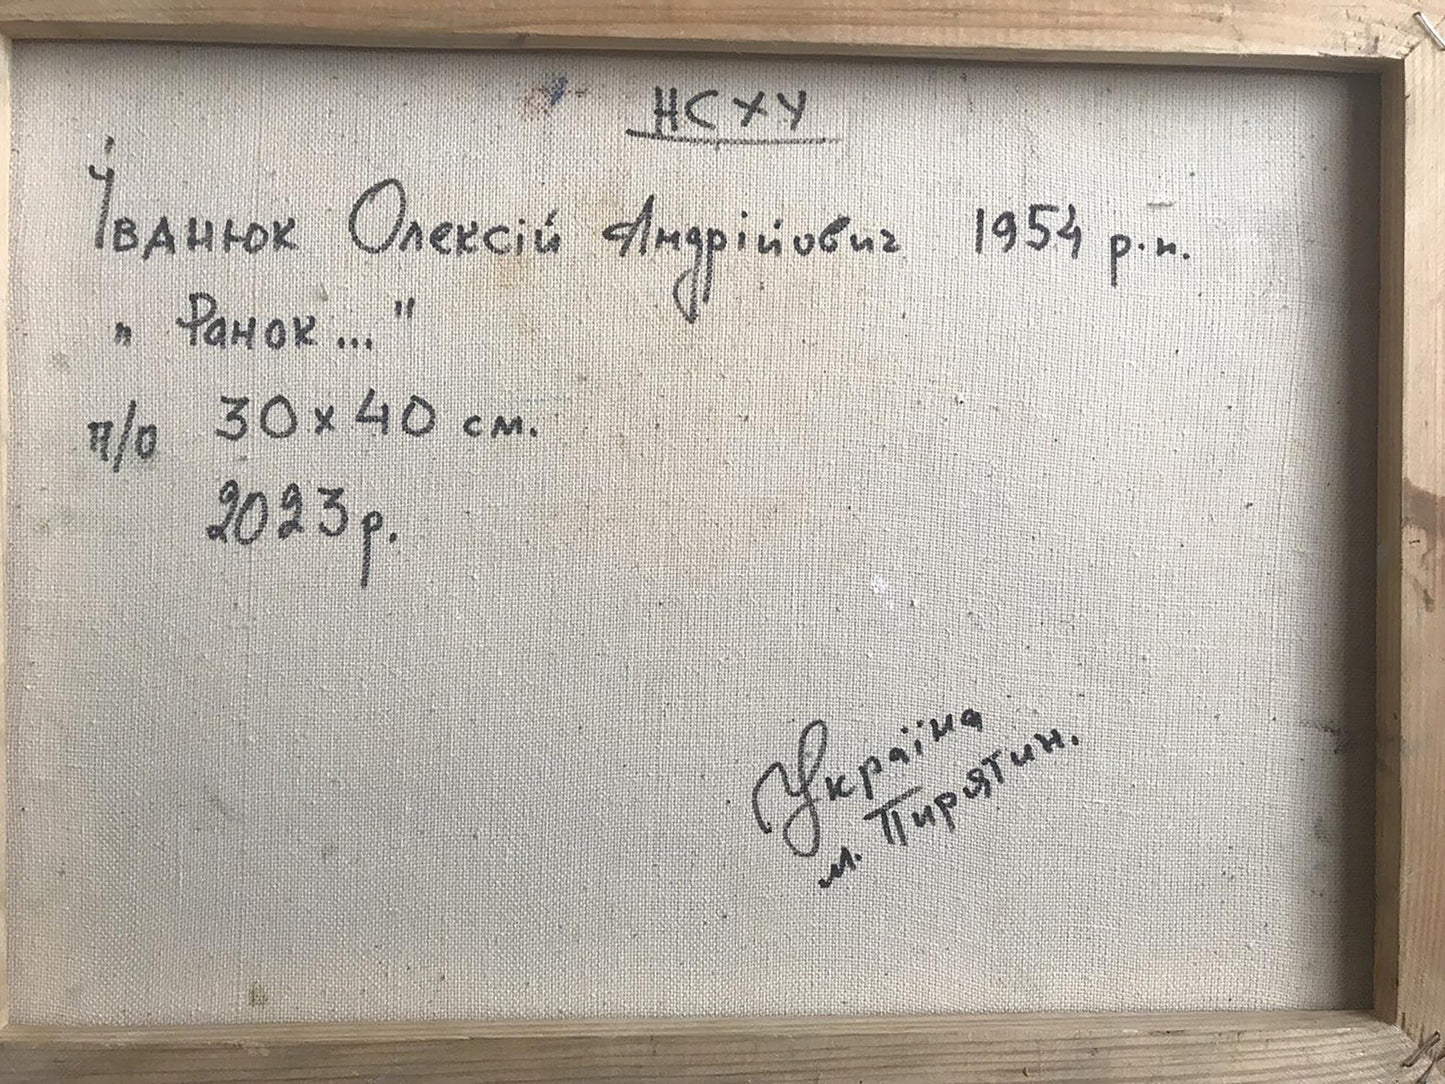 НСХУ
Іванюк Олексій Андрійович 1954 р.н.
„ Ранок..."
п/о 30х40 см.
2023р.
Україна
м. Пирятин.